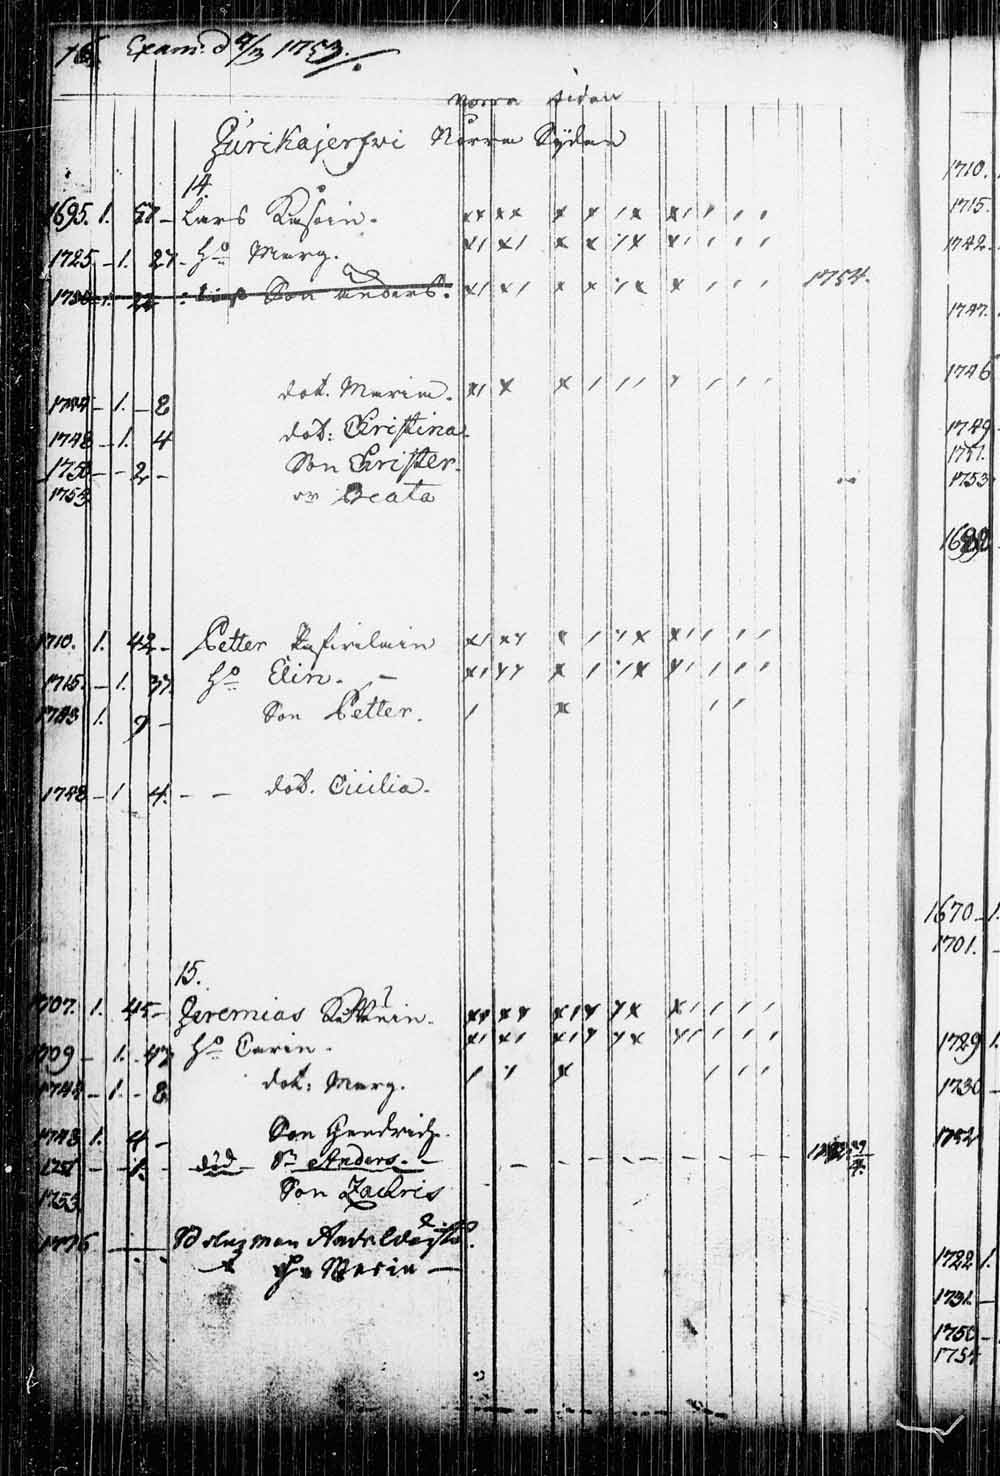 16. Exam: d 4/3 1753.
Norra sidan
Jurikajerfwi Norra Sydan
14.
1695. 1. 57 – Lars
1725 – 1. 27 – Ho Marg.
1730 – 1. 22 Son Anders. 1754.
1744 – 1. – 8 dot. Maria.
1748 – 1. 4 dot: Christina.
1750 – – 2 – Son Christer.
1753 Beata
1710. 1. 42 – Petter
1715. – 1. 37. Ho Elin. –
1743 1. 9 – Son Petter.
1748 – 1 4. – – dot. Cicilia.
15.
1707. 1. 45 – Jeremias
1709 – 1. 43 Ho Carin.
1744 – 1. – 8 dot: Marg.
1748 1. 4 – Son Hendrich.
1751 – – 1. – död Sn Anders. –
1753 Son Zachris
1776 Bolagzman Andr
Ho Maria –
1710.
1715.
1742.
1747.
1746
1749
1751.
1753
1670 – 1.
1701. –
1729 1.
1730 –
1752
1722 1.
1731. –
1750 –
1754